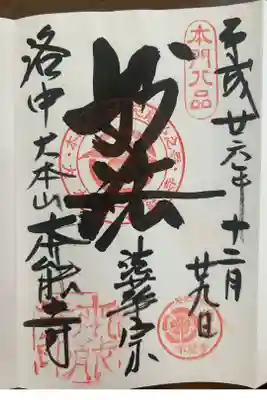 本門八品
平成廿六年十二月廿九日
妙法
法華宗
洛中大本山本能寺